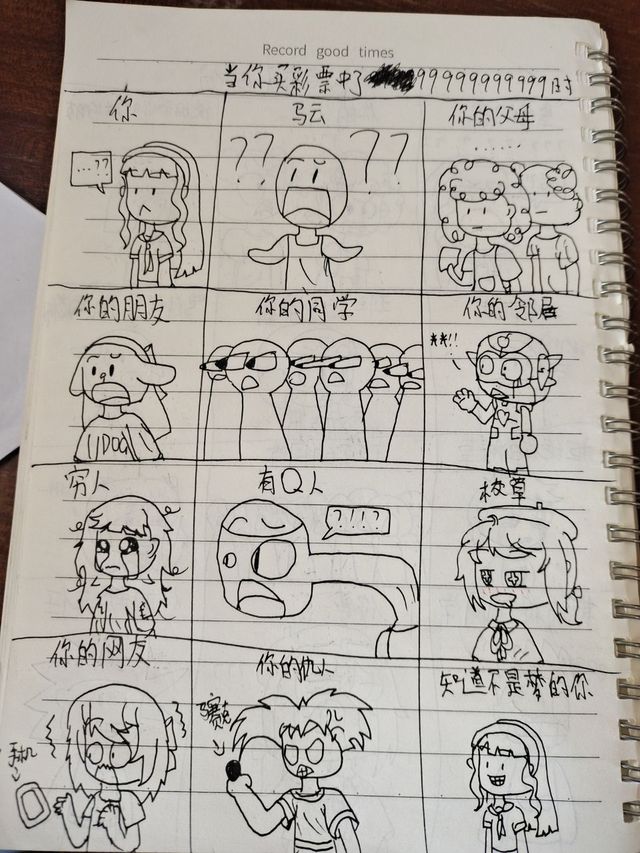 Record good times
当你买彩票中了9999999999999时
你
马云
你的父母
...??
??
??
......
你的朋友
你的同学
你的邻居
**!!
IDOG
穷人
有Q人
校草
?!!?
你的网友
你的仇人
知道不是梦的你
手机